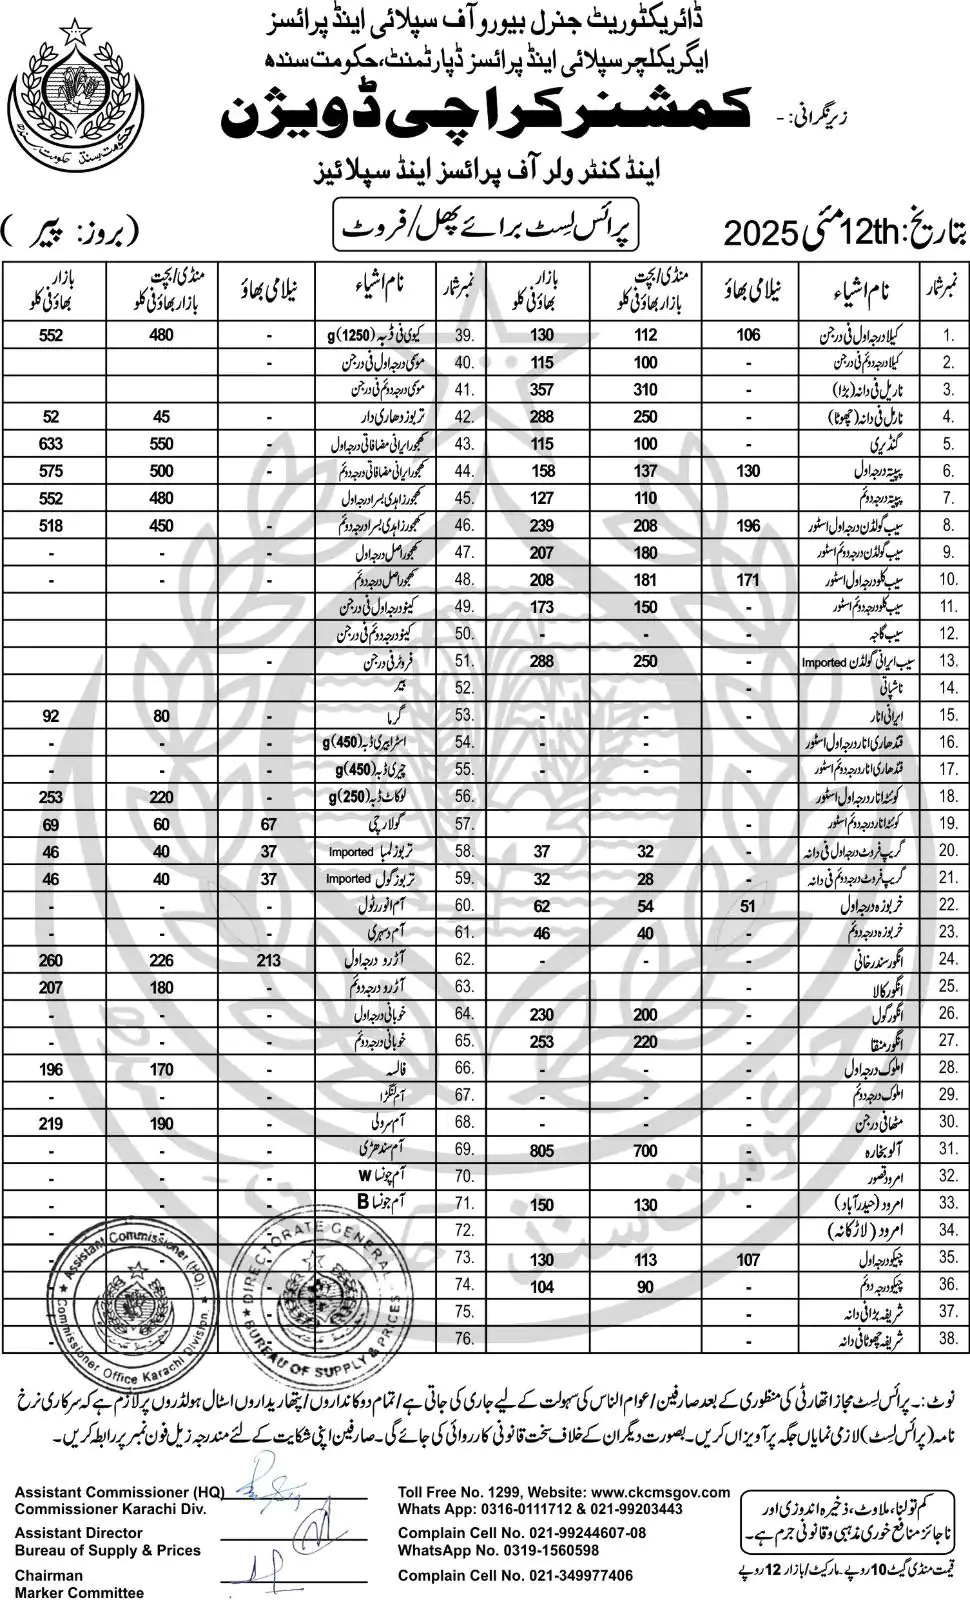 ڈائریکٹوریٹ جنرل بیورو آف سپلائی اینڈ پرائسز
ایگریکلچر سپلائی اینڈ پرائسز ڈپارٹمنٹ، حکومت سندھ
زیر نگرانی: -
کمشنر کراچی ڈویژن
اینڈ کنٹرولر آف پرائسز اینڈ سپلائیز
بتاریخ: 12th مئی 2025
پرائس لسٹ برائے پھل / فروٹ
(بروز: پیر)
نمبر شمار نام اشیاء نیلامی بھاؤ منڈی/بچت بازار بھاؤ فی کلو بازار بھاؤ فی کلو
1. کیلا درجہ اول فی درجن 106 112 130
2. کیلا درجہ دوئم فی درجن - 100 115
3. ناریل فی دانہ (بڑا) - 310 357
4. ناریل فی دانہ (چھوٹا) - 250 288
5. گنڈیری - 100 115
6. پپیتہ درجہ اول 130 137 158
7. پپیتہ درجہ دوئم - 110 127
8. سیب گولڈن درجہ اول اسٹور 196 208 239
9. سیب گولڈن درجہ دوئم اسٹور - 180 207
10. سیب کلو درجہ اول اسٹور 171 181 208
11. سیب کلو درجہ دوئم اسٹور - 150 173
12. سیب گاجہ - - -
13. سیب ایرانی گولڈن Imported - 250 288
14. ناشپاتی -
15. ایرانی انار - - -
16. قندھاری انار درجہ اول اسٹور - - -
17. قندھاری انار درجہ دوئم اسٹور - - -
18. کوئٹہ انار درجہ اول اسٹور -
19. کوئٹہ انار درجہ دوئم اسٹور -
20. گریپ فروٹ درجہ اول فی دانہ - 32 37
21. گریپ فروٹ درجہ دوئم فی دانہ - 28 32
22. خربوزہ درجہ اول 51 54 62
23. خربوزہ درجہ دوئم - 40 46
24. انگور سندرخانی - - -
25. انگور کالا -
26. انگور گول - 200 230
27. انگور منقا - 220 253
28. املوک درجہ اول - - -
29. املوک درجہ دوئم -
30. مٹھا فی درجن - - -
31. آلو بخارہ - 700 805
32. امرود قصور -
33. امرود (حیدرآباد) - 130 150
34. امرود (لاڑکانہ)
35. چیکو درجہ اول 107 113 130
36. چیکو درجہ دوئم - 90 104
37. شریفہ بڑا فی دانہ -
38. شریفہ چھوٹا فی دانہ -
نمبر شمار نام اشیاء نیلامی بھاؤ منڈی/بچت بازار بھاؤ فی کلو بازار بھاؤ فی کلو
39. کیوی فی ڈبہ (1250)g - 480 552
40. موسمی درجہ اول فی درجن -
41. موسمی درجہ دوئم فی درجن
42. تربوز دھاری دار - 45 52
43. کھجور ایرانی مضافاتی درجہ اول - 550 633
44. کھجور ایرانی مضافاتی درجہ دوئم - 500 575
45. کھجور زاہدی بسرا درجہ اول - 480 552
46. کھجور زاہدی بسرا درجہ دوئم - 450 518
47. کھجور اصل درجہ اول - - -
48. کھجور اصل درجہ دوئم - - -
49. کینو درجہ اول فی درجن
50. کینو درجہ دوئم فی درجن
51. فروٹر فی درجن -
52. بیر
53. گرما - 80 92
54. اسٹرابیری ڈبہ (450)g - - -
55. چیری ڈبہ (450)g - - -
56. لوکاٹ ڈبہ (250)g - 220 253
57. گولارچی 67 60 69
58. تربوز لمبا Imported 37 40 46
59. تربوز گول Imported 37 40 46
60. آم انور رٹول - - -
61. آم دسہری - - -
62. آڑو درجہ اول 213 226 260
63. آڑو درجہ دوئم - 180 207
64. خوبانی درجہ اول - - -
65. خوبانی درجہ دوئم - - -
66. فالسہ - 170 196
67. آم لنگڑا - - -
68. آم سرولی - 190 219
69. آم سندھڑی - - -
70. آم چونسا W - - -
71. آم چونسا B - - -
72.
73.
74.
75.
76.
Assistant Commissioner (HQ).
Commissioner Office Karachi Division.
DIRECTORATE GENERAL
BUREAU OF SUPPLY & PRICES
نوٹ:۔ پرائس لسٹ مجاز اتھارٹی کی منظوری کے بعد صارفین / عوام الناس کی سہولت کے لیے جاری کی جاتی ہے / تمام دوکانداروں / پتھاریداروں اسٹال ہولڈروں پر لازم ہے کہ سرکاری نرخ
نامہ (پرائس لسٹ) لازمی نمایاں جگہ پر آویزاں کریں۔ بصورت دیگر ان کے خلاف سخت قانونی کارروائی کی جائے گی۔ صارفین اپنی شکایت کے لئے مندرجہ زیل فون نمبر پر رابطہ کریں۔
Assistant Commissioner (HQ)
Commissioner Karachi Div.
Assistant Director
Bureau of Supply & Prices
Chairman
Marker Committee
Toll Free No. 1299, Website: www.ckcmsgov.com
Whats App: 0316-0111712 & 021-99203443
Complain Cell No. 021-99244607-08
WhatsApp No. 0319-1560598
Complain Cell No. 021-349977406
کم تولنا، ملاوٹ، ذخیرہ اندوزی اور
ناجائز منافع خوری مذہبی و قانونی جرم ہے۔
قیمت منڈی گیٹ 10 روپے۔ مارکیٹ / بازار 12 روپے